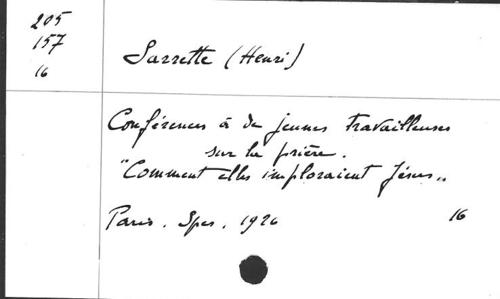 205
157
16
Sarrette (Henri)
Conférences à de jeunes travailleuses
sur la prière.
"Comment elles imploraient Jésus"
Paris. Spes. 1926
16